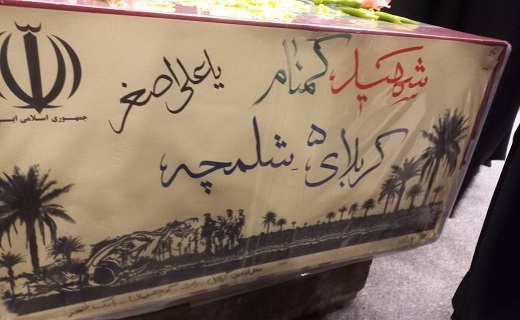 شهید گمنام
یا علی اصغر
جمهوری اسلامی ایر
کربلای ۵ شلمچه